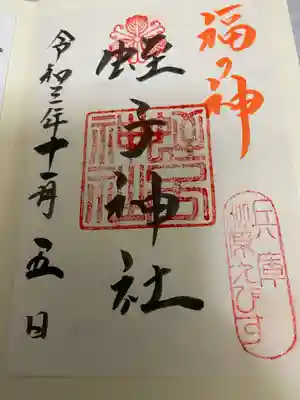 福の神
兵庫
柳原えびす
蛭子神社
蛭子神社
令和三年十一月五日